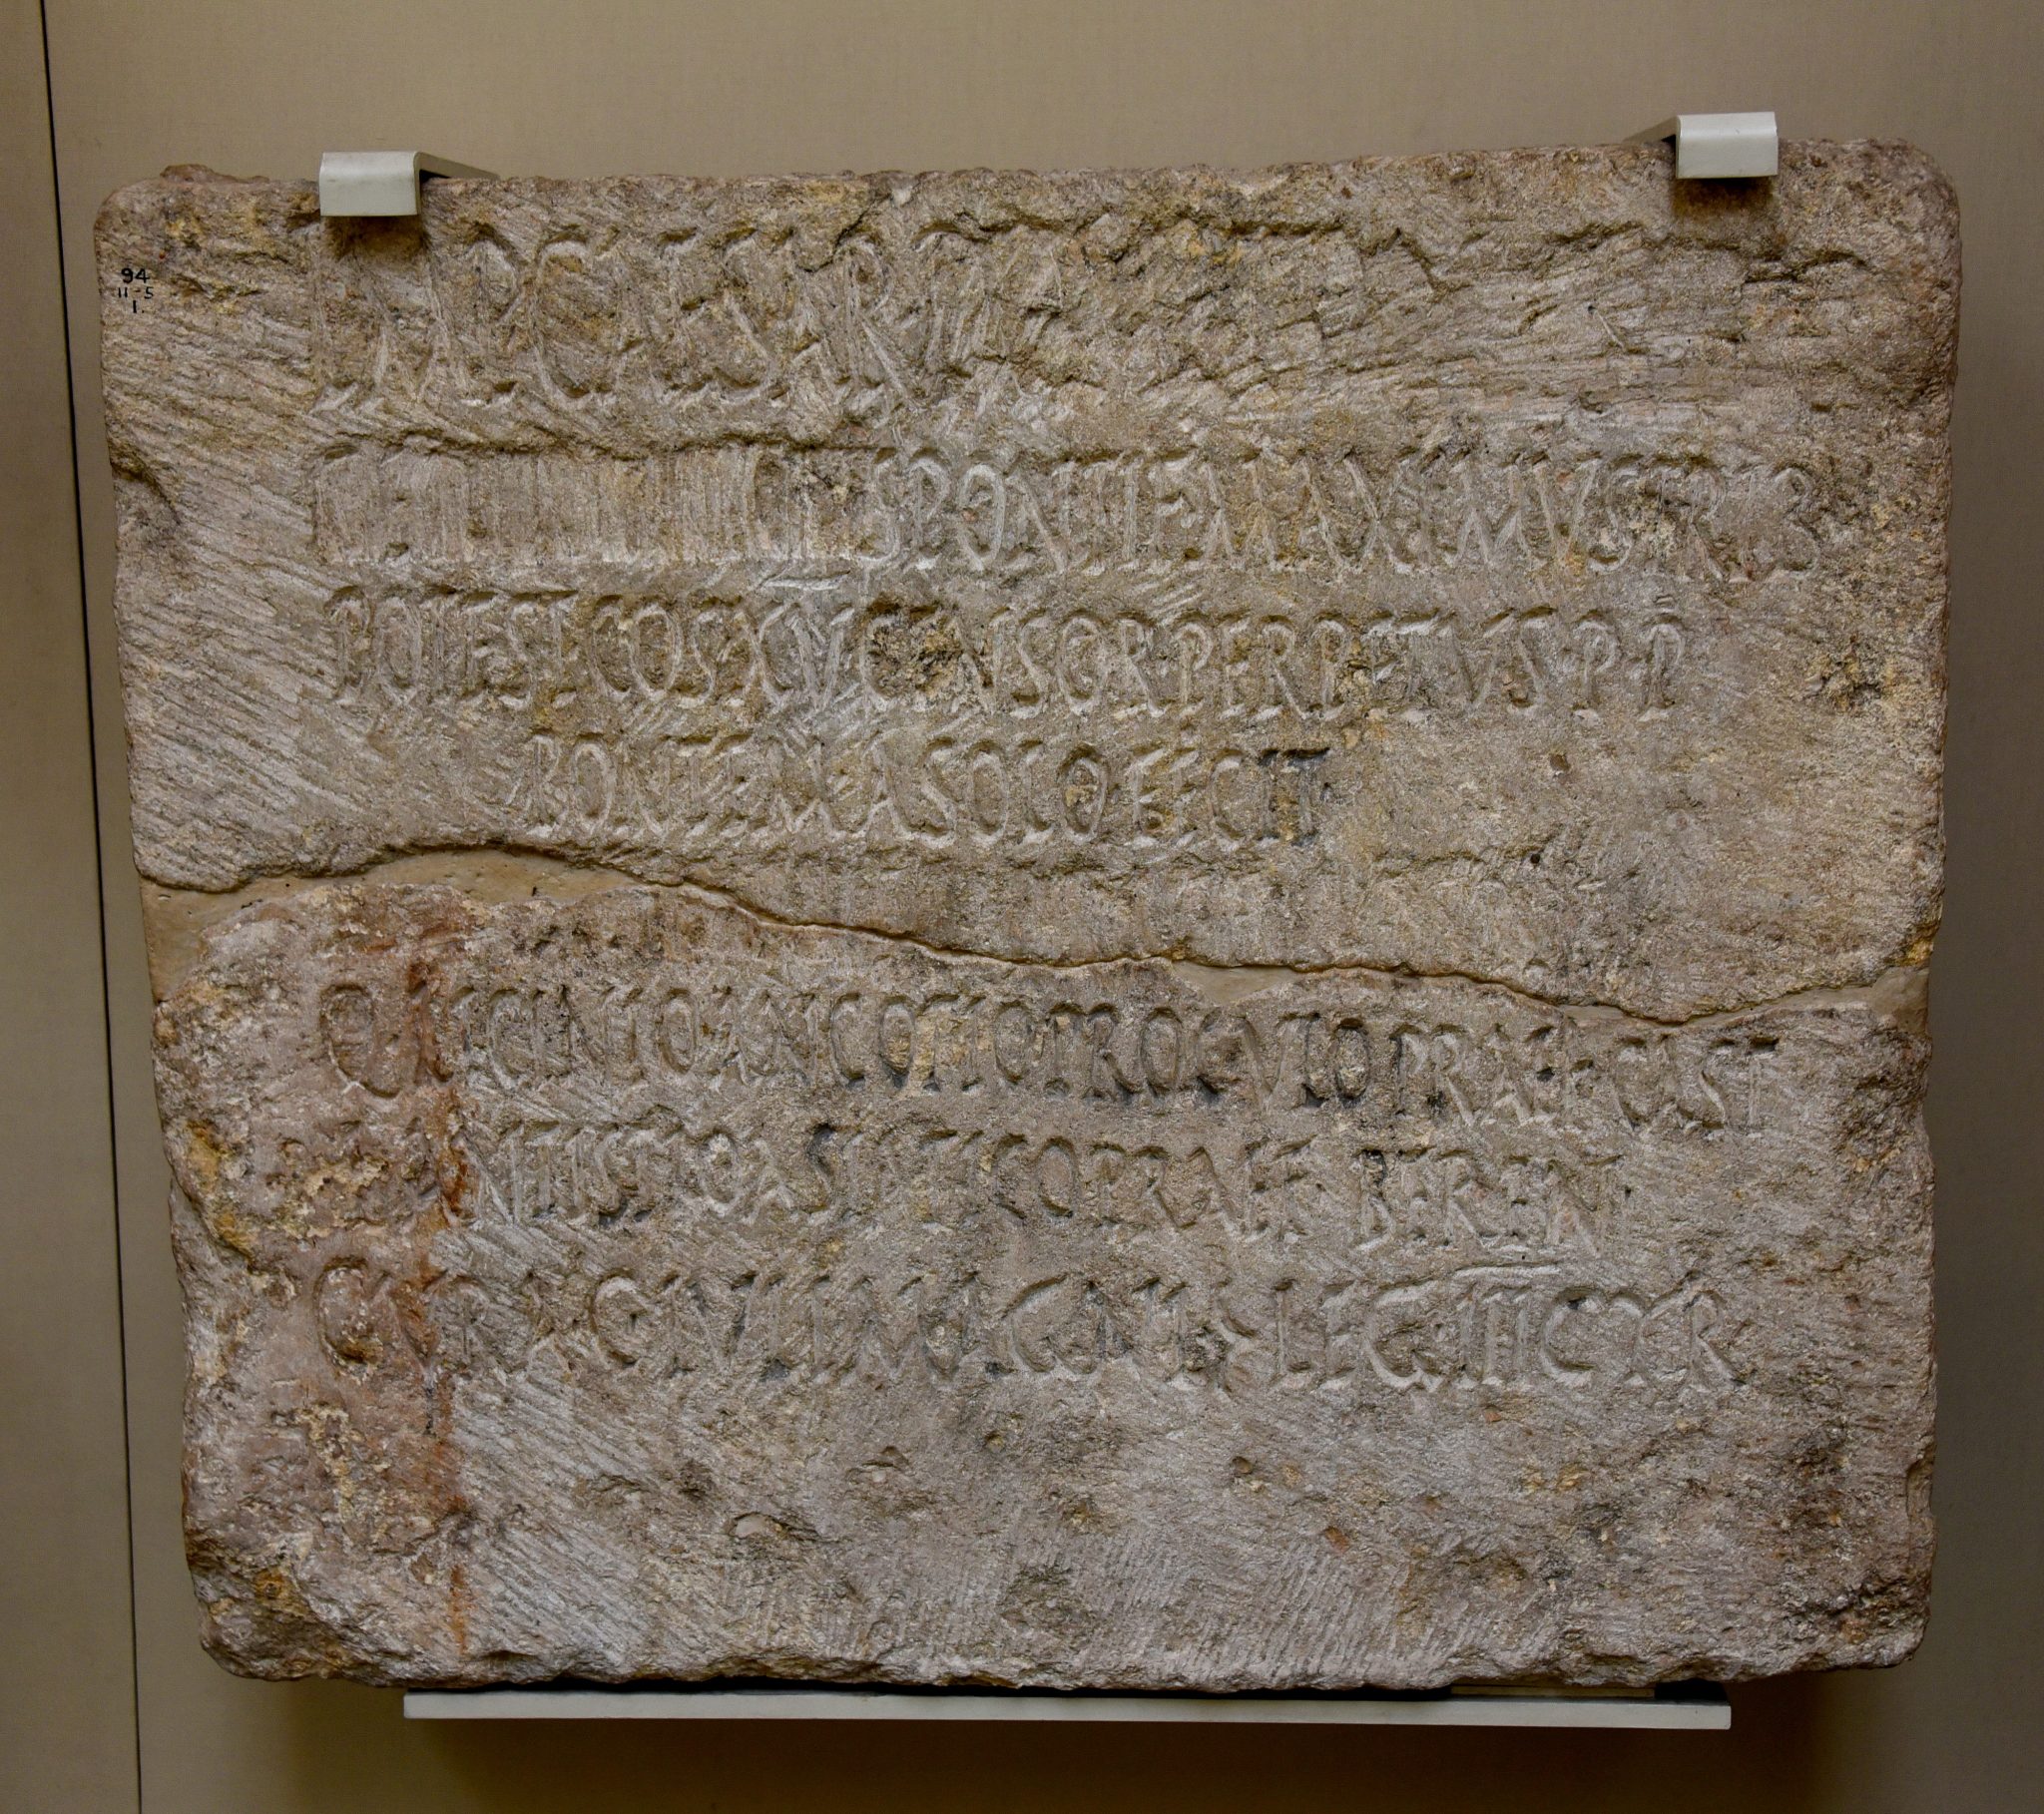 94
11-5
1.
IMP CAESAR
PONTIF·MAXIMVS TRIB
POTEST·COS XV CENSOR·PERPETVVS·P·P
PONTEM·A SOLO·FECIT
Q LICINIO ANCOTIO PROCVLO PRAEF CAST
ANTISTIO ASIATICO PRAEF BEREN
CVRA C IVLI MAGNI > LEG III CYR